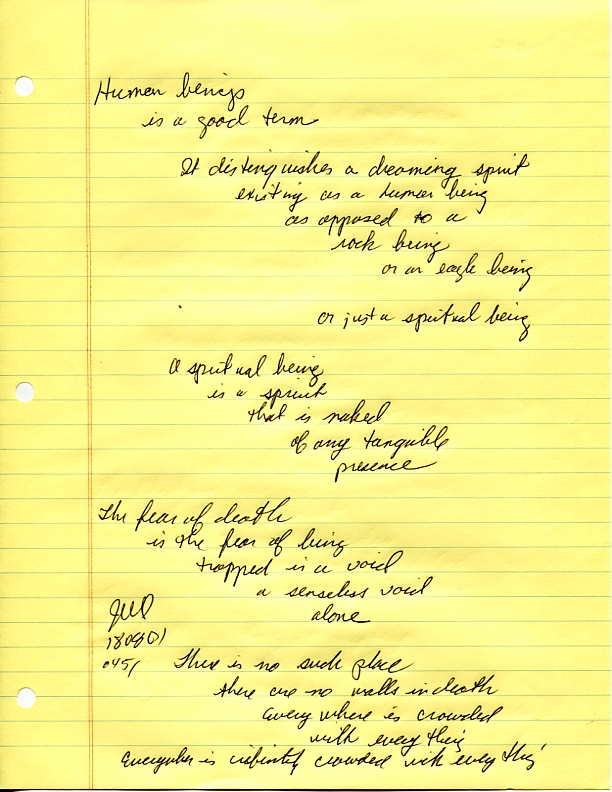 Human beings
is a good term
It distinguishes a dreaming spirit
existing as a human being
as opposed to a
rock being
or an eagle being
or just a spiritual being
A spiritual being
is a spirit
that is naked
of any tangible
presence
The fear of death
is the fear of being
trapped in a void
a senseless void
alone
180801
0451
There is no such place
there are no walls in death
Everywhere is crowded
with everything
Everywhere is infinitely crowded with everything